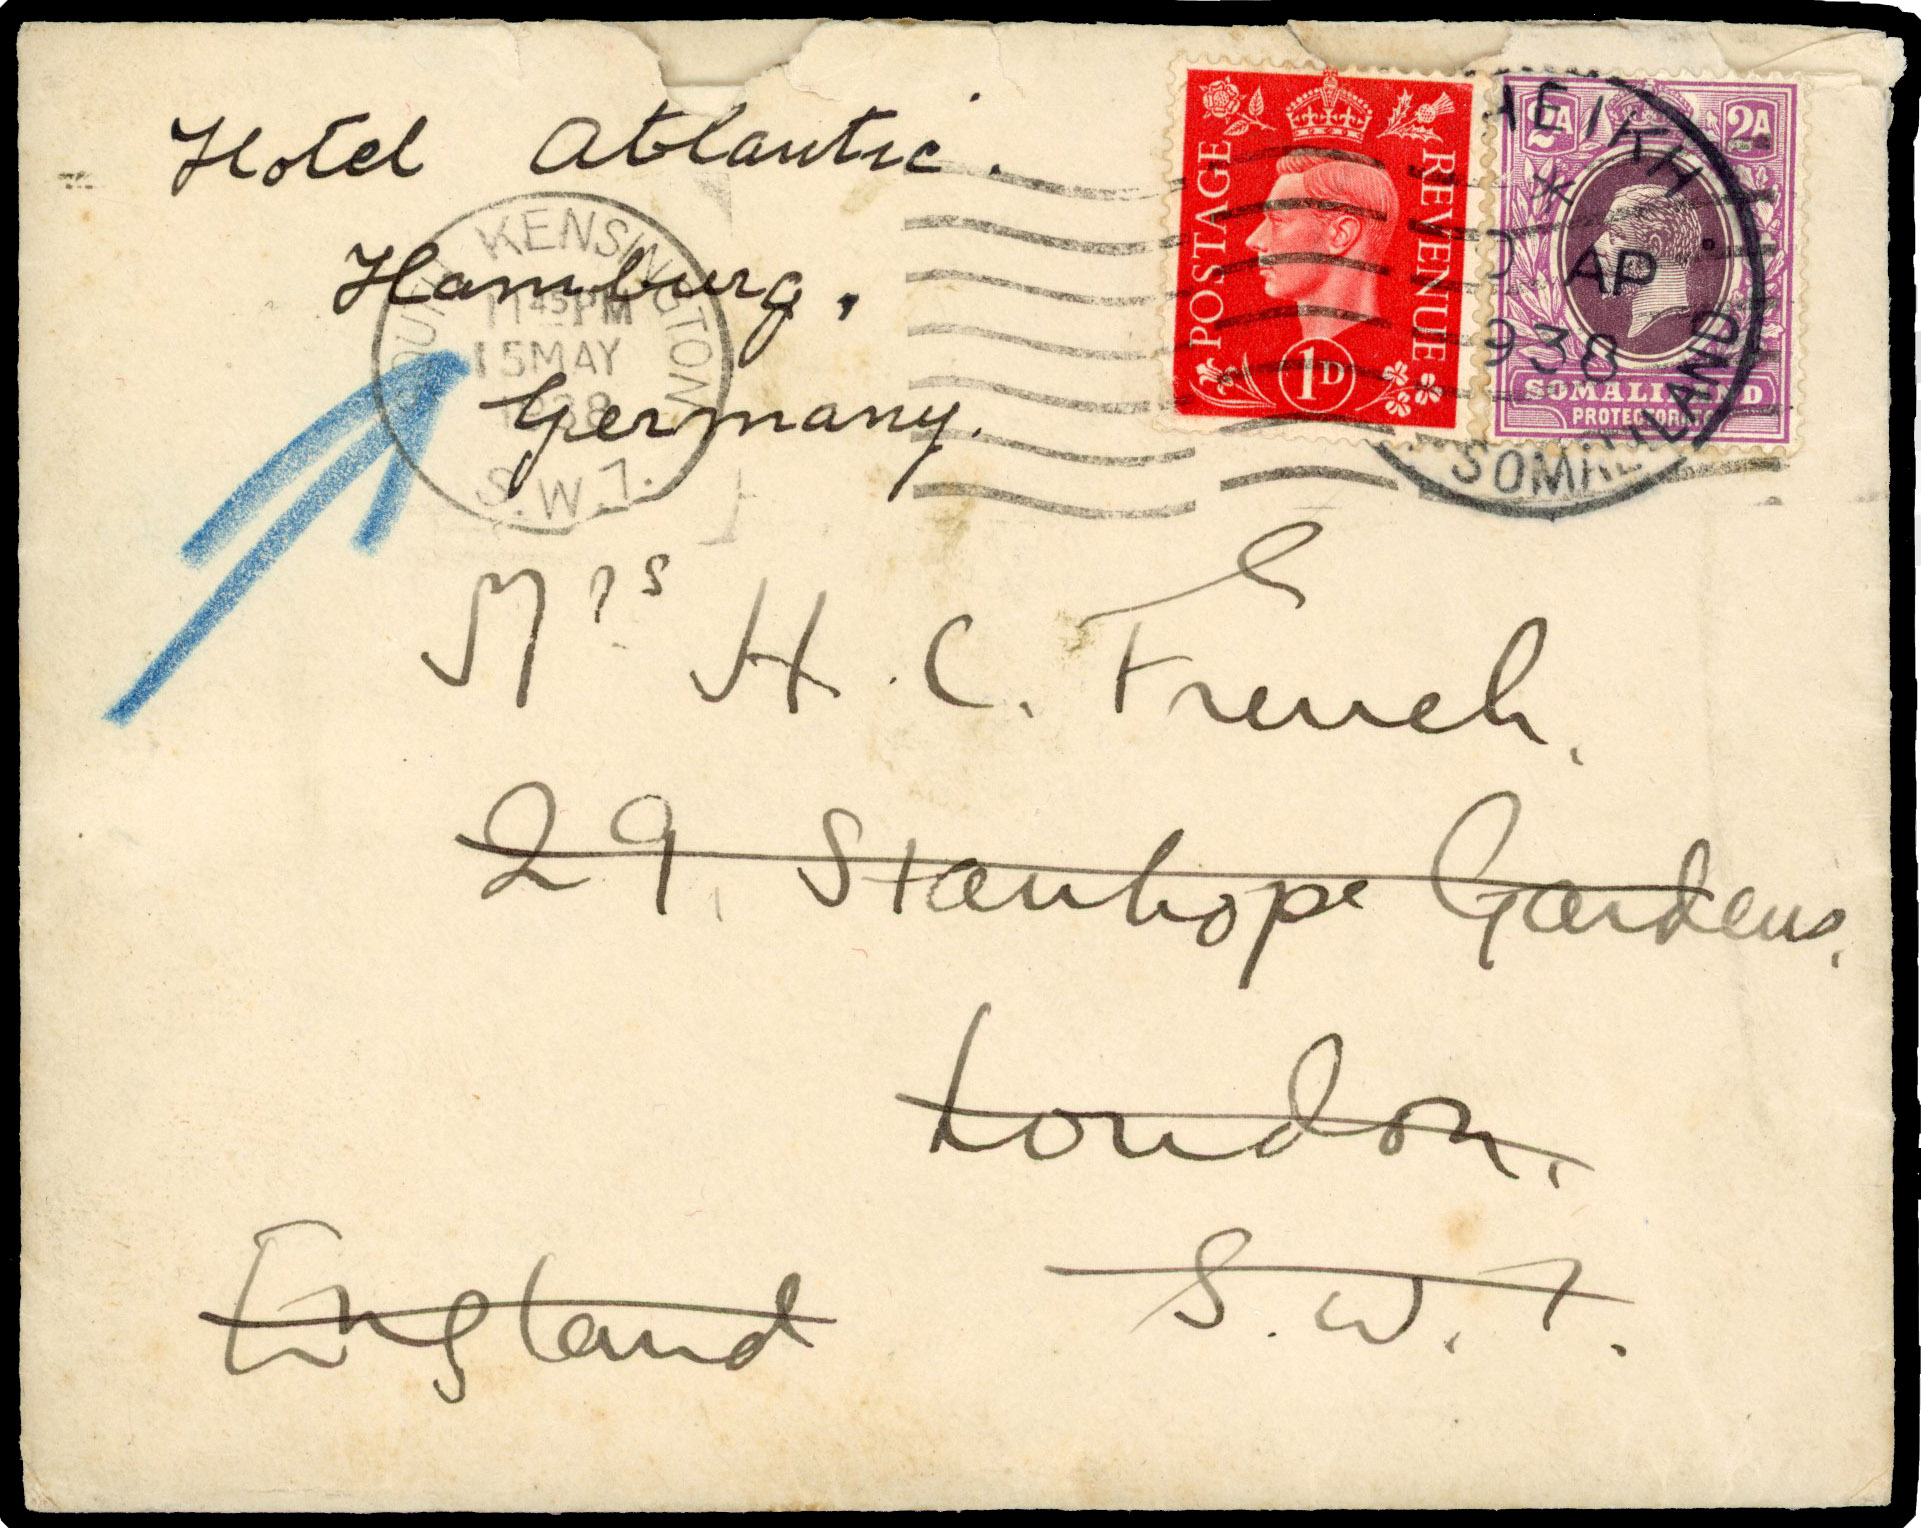 Hotel Atlantic.
Hamburg.
Germany.
KENSINGTON
11 45 PM
15 MAY
1938
S.W.7.
POSTAGE
REVENUE
1D
2A 2A
SOMALILAND
PROTECTORATE
AP
938
SOMALILAND
Mrs H. C. French.
29 Stanhope Gardens.
London.
S.W.7.
England